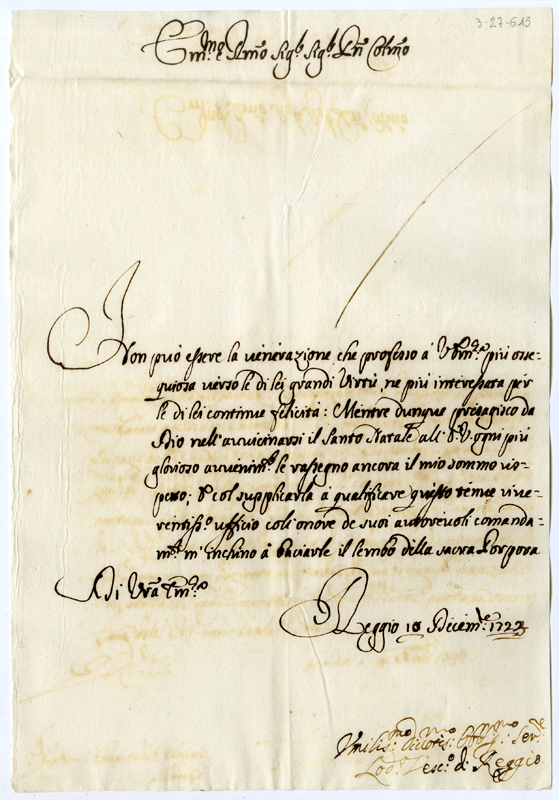 3-27-615
Em.mo e Rmo Sigr Sigr Prñ Colmo
Non può essere la venerazione, che professo à V. Em.za più osse-
quiosa verso le di lei grandi Virtù, ne più interessata per
le di lei continue felicità: Mentre dunque presagisco da
Dio nell'avvicinarsi il Santo Natale all' E. V. ogni più
glorioso avvenim.to le rassegno ancora il mio sommo ris-
petto; e col supplicarla à qualificare questo tenue rive-
rentiss.o ufficio coll' onore de suoi autorevoli comanda-
m.ti m' inchino à baciarle il lembo della sacra Porpora
Di Vrã Em.za
Reggio 18 Dicem.e 1722
Umilis.mo Divotis.mo Obblig.mo Ser.e
Lod.o Vesc.o di Reggio